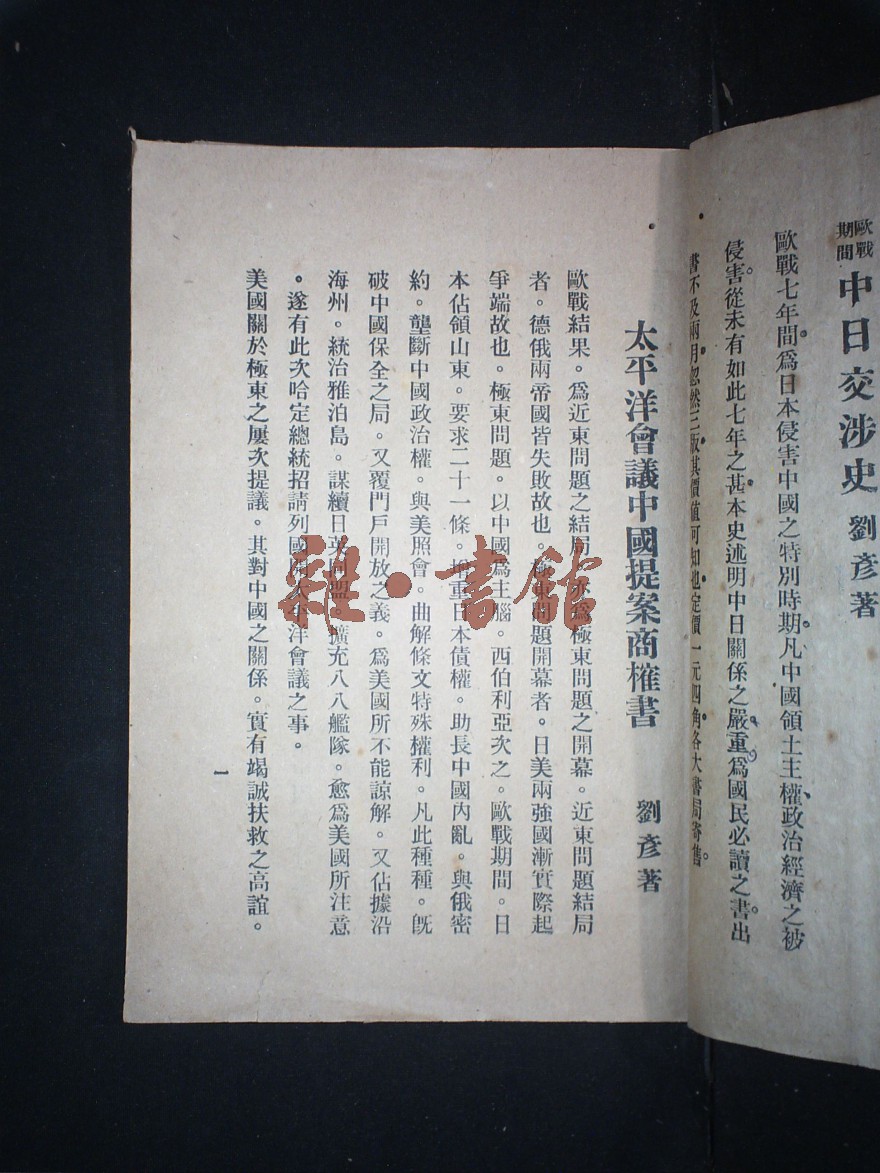 歐戰期間 中日交涉史 劉彥著
歐戰七年間。爲日本侵害中國之特別時期。凡中國領土主權政治經濟之被
侵害。從未有如此七年之甚。本史述明中日關係之嚴重。爲國民必讀之書。出
書不及兩月。忽然三版。其價值可知也。定價一元四角。各大書局寄售。
太平洋會議中國提案商榷書
劉彥著
歐戰結果。爲近東問題之結局。亦爲極東問題之開幕。近東問題結局
者。德俄兩帝國皆失敗故也。極東問題開幕者。日美兩強國漸實際起
爭端故也。極東問題。以中國爲主腦。西伯利亞次之。歐戰期間。日
本佔領山東。要求二十一條。增重日本債權。助長中國內亂。與俄密
約。壟斷中國政治權。與美照會。曲解條文特殊權利。凡此種種。旣
破中國保全之局。又覆門戶開放之義。爲美國所不能諒解。又佔據沿
海州。統治雅泊島。謀續日英同盟。擴充八八艦隊。愈爲美國所注意
。遂有此次哈定總統招請列國開太平洋會議之事。
美國關於極東之屢次提議。其對中國之關係。實有竭誠扶救之高誼。
一
雜・書館